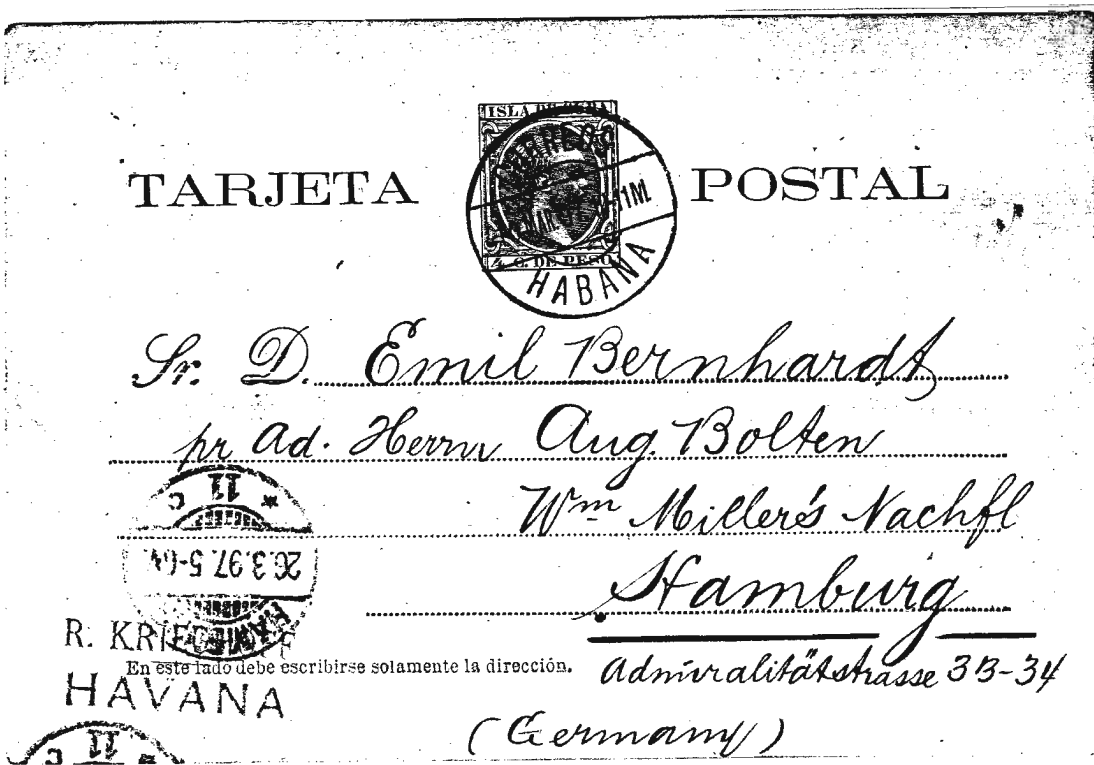 ISLA DE CUBA
TARJETA POSTAL
CORREOS
MAR 11M.
4 C. DE PESO
HABANA
Sr. D. Emil Bernhardt
pr Ad. Herrn Aug. Bolten
Wm Miller's Nachfl
Hamburg
Admiralitätstrasse 33-34
(Germany)
* 11 C
26.3.97. 5-6N.
HAMBURG
R.
HAVANA
En este lado debe escribirse solamente la dirección.
* 11 C